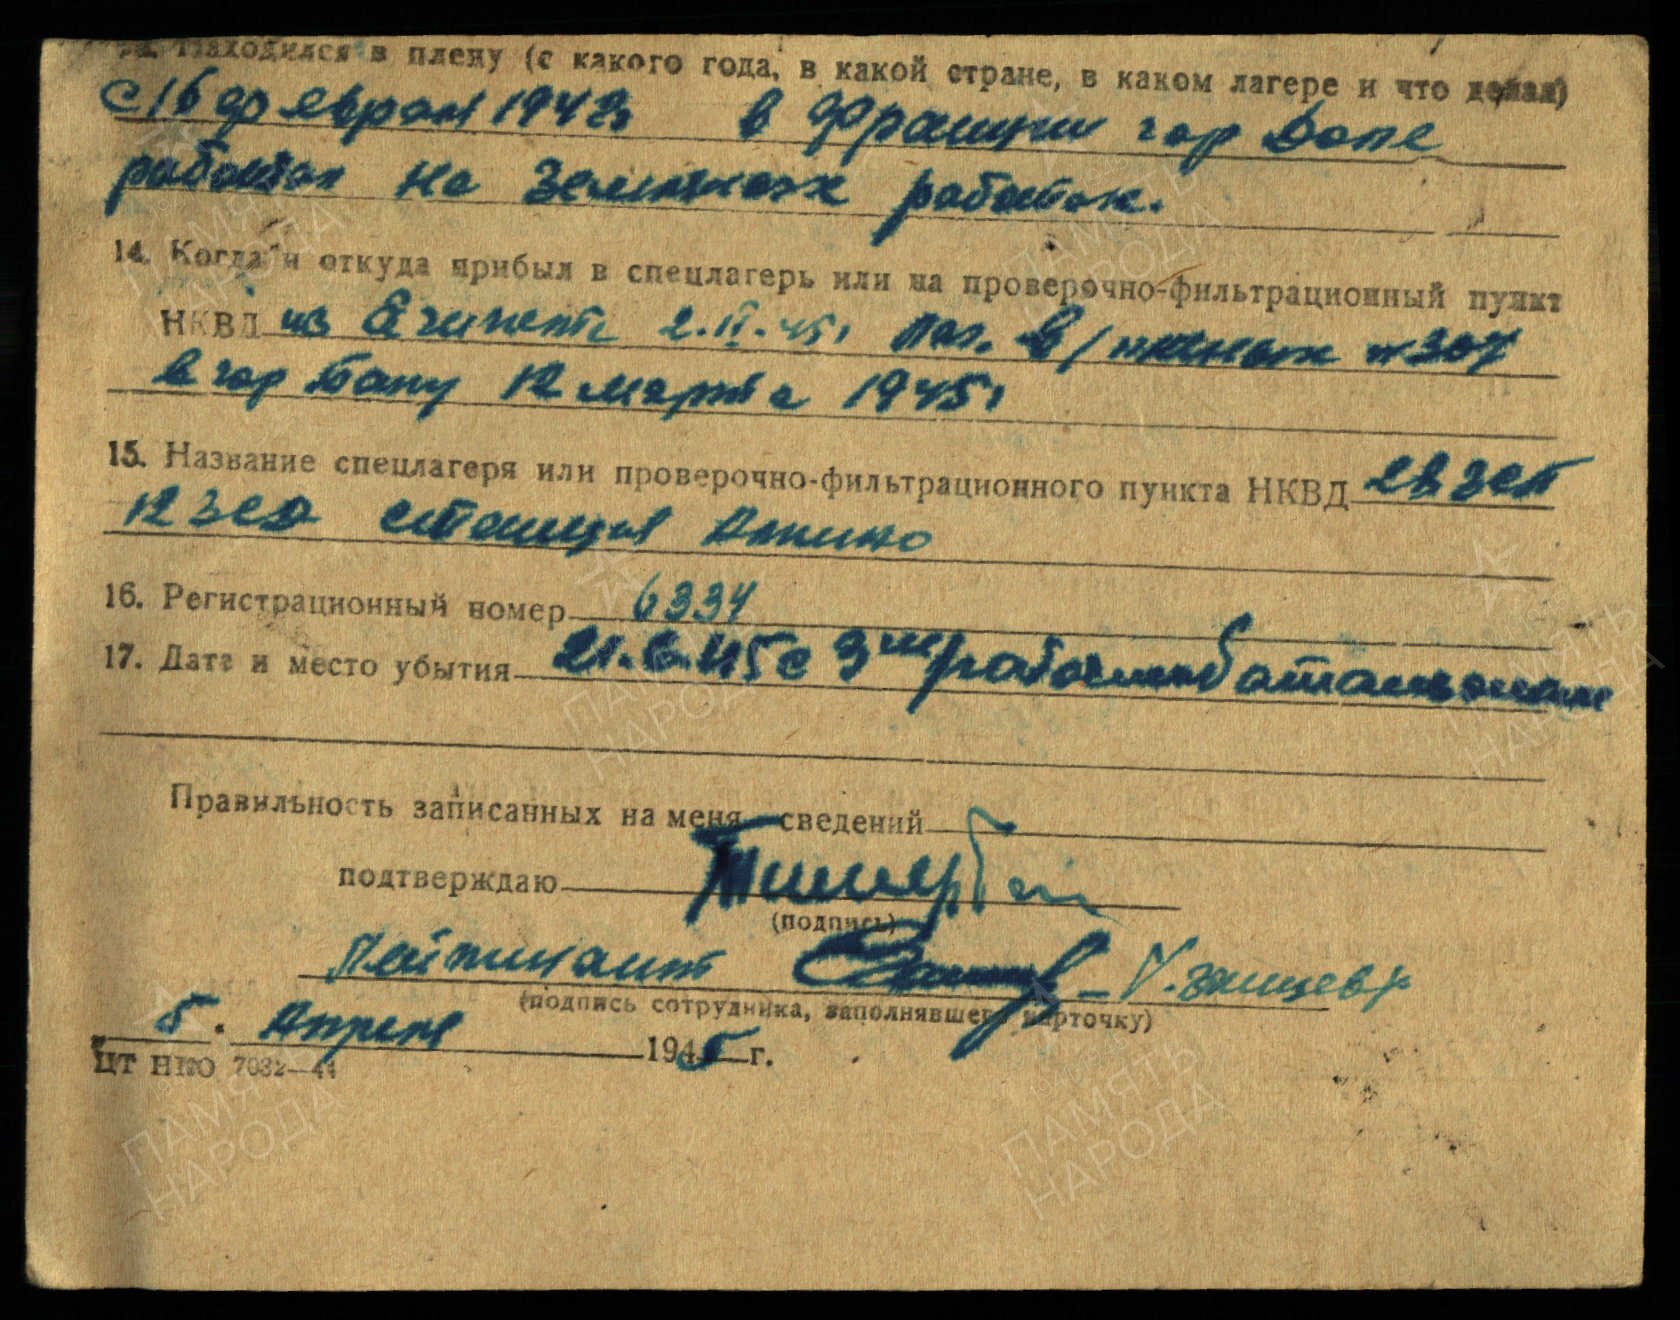 Находился в плену (с какого года, в какой стране, в каком лагере и что делал)
с 16 феврал 1943 в Франции гор Доле
работал на земляных работах.
14. Когда и откуда прибыл в спецлагерь или на проверочно-фильтрационный пункт
НКВД из Египета 2.II.45г лаг. в/пленых № 307
в гор Баку 12 марта 1945г
15. Название спецлагеря или проверочно-фильтрационного пункта НКВД
12 ЗСД станция Алкино
16. Регистрационный номер 6334
17. Дата и место убытия 21.6.45 с 3им рабочим баталионом
Правильность записанных на меня сведений
подтверждаю
(подпись)
Лейтинант
(подпись сотрудника, заполнявшего карточку)
5. Апреля 1945 г.
ЦТ НКО 7032—44
ПАМЯТЬ НАРОДА